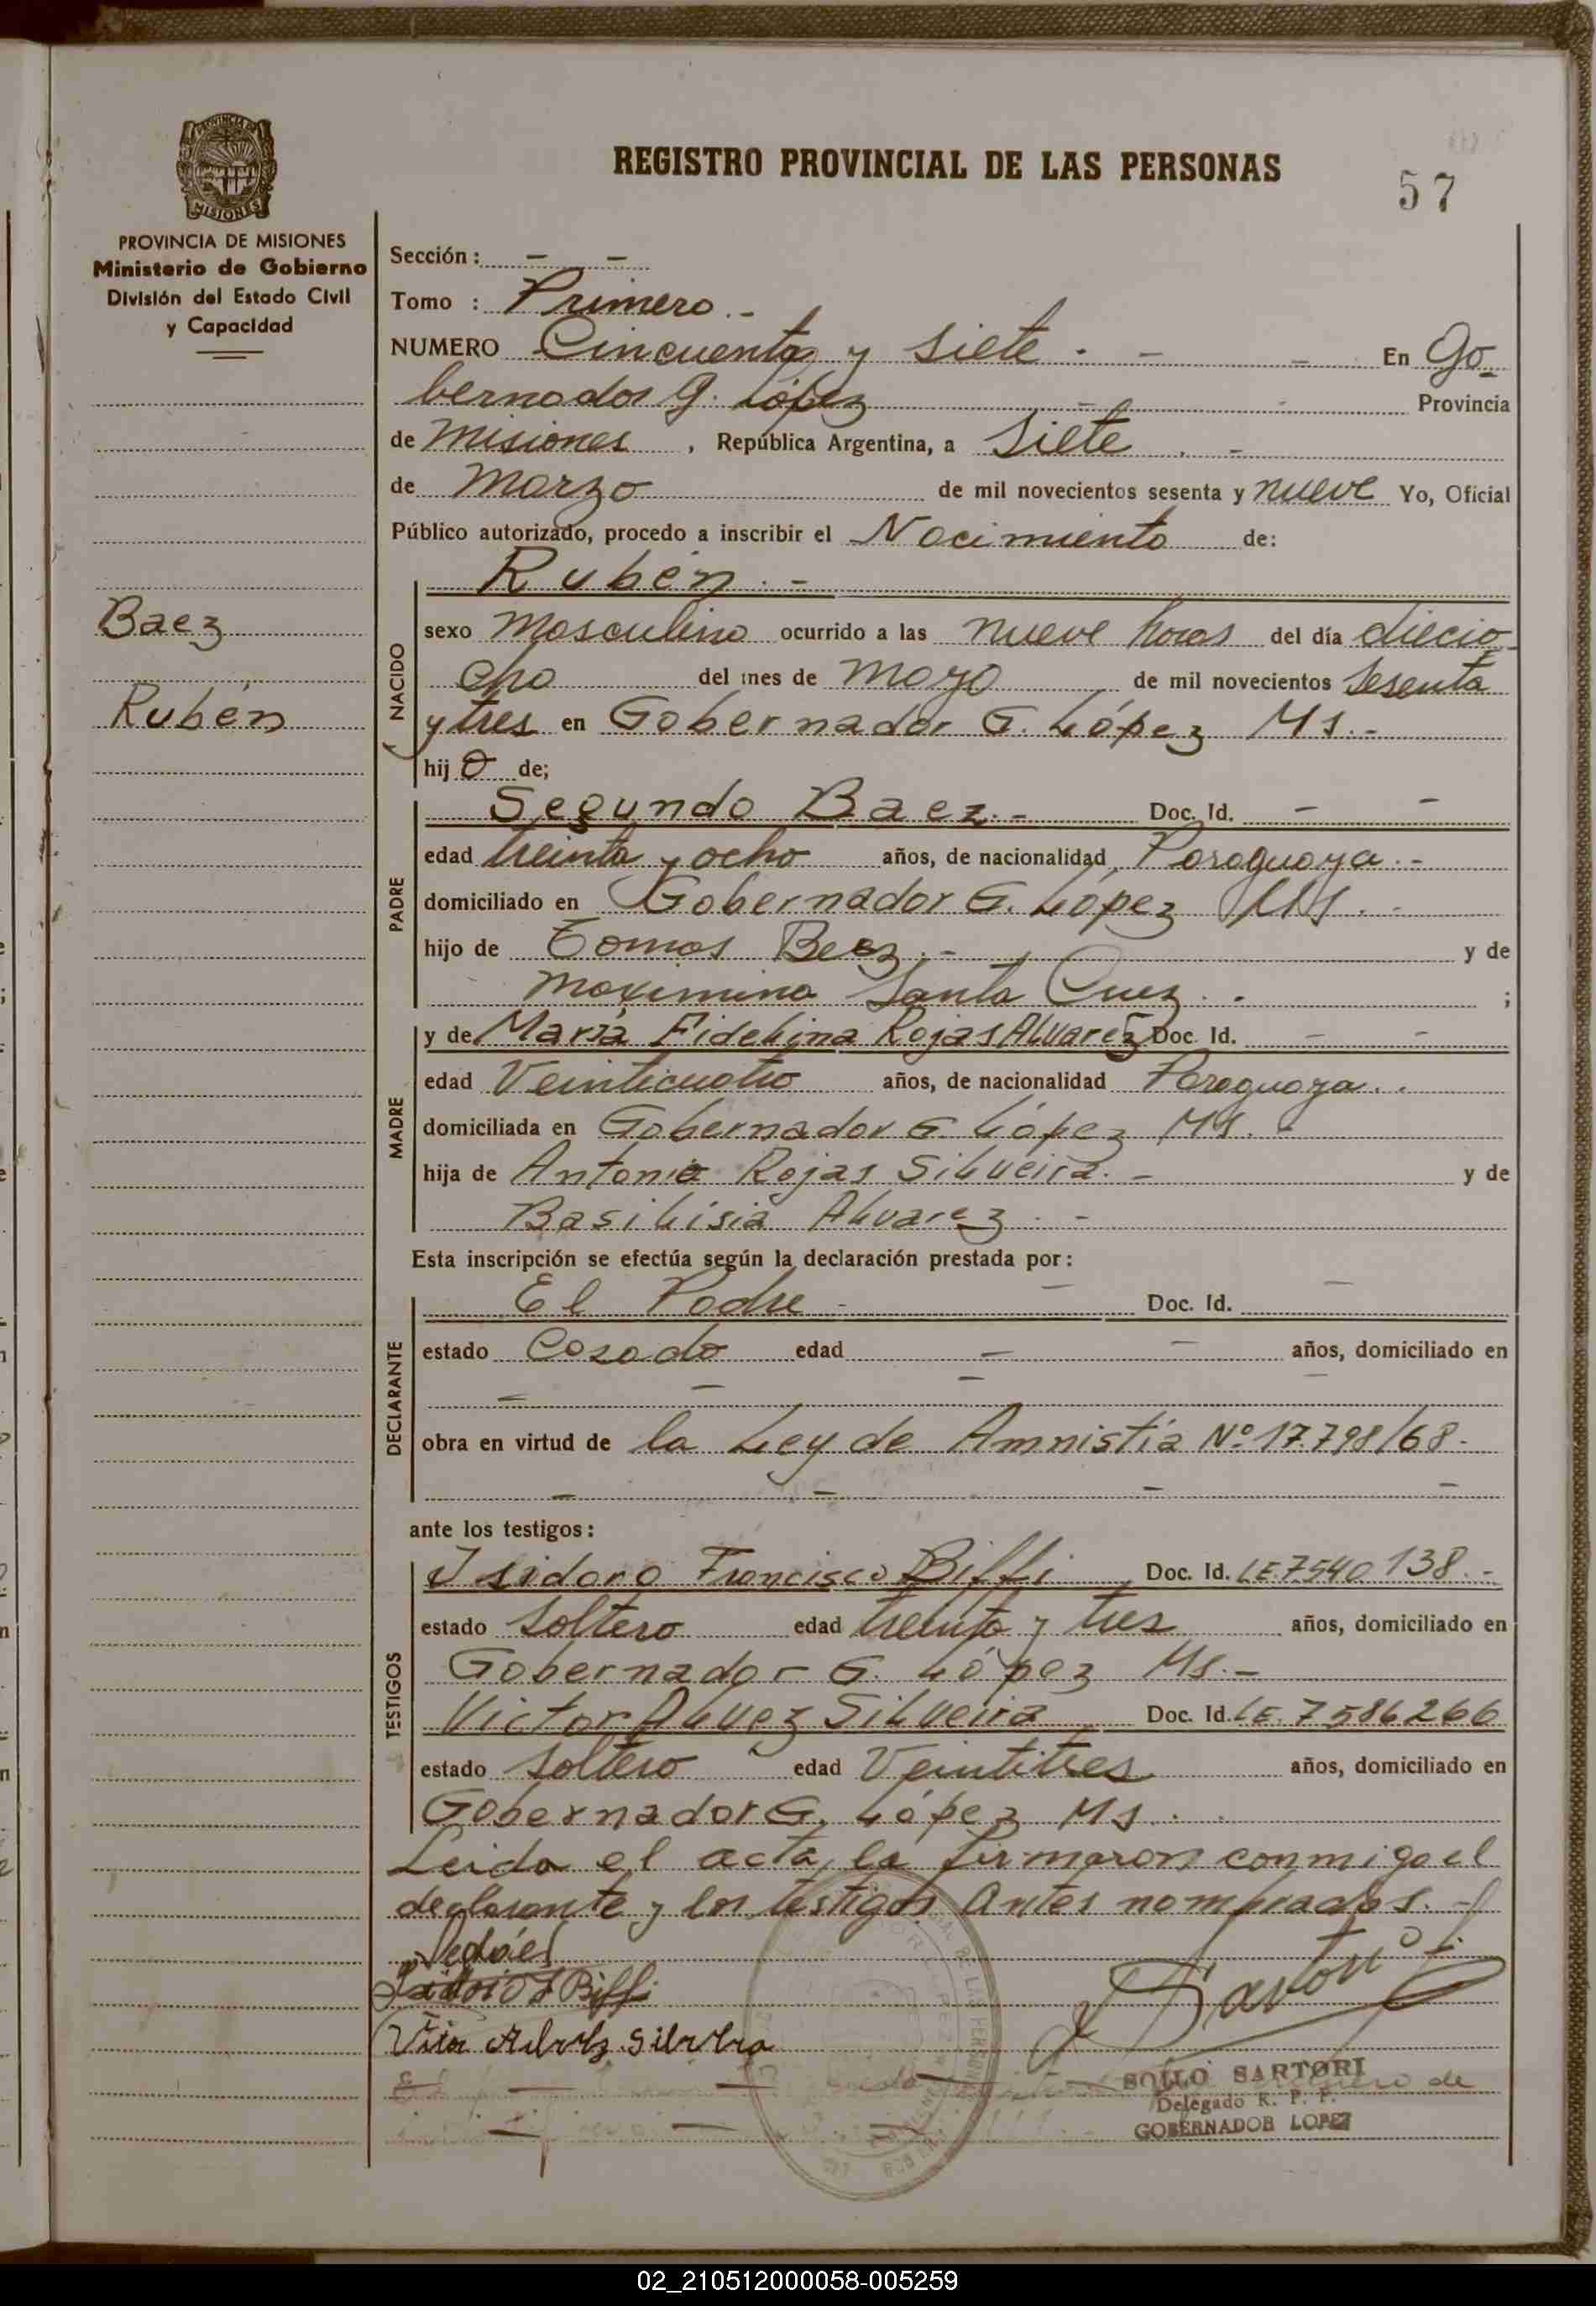 REGISTRO PROVINCIAL DE LAS PERSONAS
57
PROVINCIA DE MISIONES
Ministerio de Gobierno
División del Estado Civil
y Capacidad
Baez
Rubén
Sección: — —
Tomo : Primero.-
NUMERO Cincuenta y siete. - - En Go-
bernador G. López - - Provincia
de Misiones, República Argentina, a Siete. -
de Marzo de mil novecientos sesenta y nueve Yo, Oficial
Público autorizado, procedo a inscribir el Nacimiento de:
NACIDO
Rubén.-
sexo Masculino ocurrido a las nueve horas del día diecio-
cho del mes de Mayo de mil novecientos Sesenta
y tres en Gobernador G. López Ms.-
hij o de;
PADRE
Segundo Baez.- Doc. Id. - -
edad treinta y ocho años, de nacionalidad Paraguaya.-
domiciliado en Gobernador G. López Ms. -
hijo de Tomas Baez.- y de
Maximina Santa Cruz. . ;
MADRE
y de María Fidelina Rojas Alvarez Doc. Id. - -
edad Veinticuatro años, de nacionalidad Paraguaya..
domiciliada en Gobernador G. López Ms. -
hija de Antonio Rojas Silveira. - y de
Basilisia Alvarez. -
Esta inscripción se efectúa según la declaración prestada por:
DECLARANTE
El Padre - - Doc. Id. -
estado Casado edad - - años, domiciliado en
- - - -
obra en virtud de la Ley de Amnistía Nº 17.798/68.-
- - - -
ante los testigos:
TESTIGOS
Isidoro Francisco Biffi Doc. Id. LE.7540138.-
estado Soltero edad treinta y tres años, domiciliado en
Gobernador G. López Ms.-
Victor Alvez Silveira Doc. Id. LE.7586266
estado Soltero edad Veintitres años, domiciliado en
Gobernador G. López Ms. .
Leida el acta, la firmaron conmigo el
declarante y los testigos antes nombrados.-
Isidoro F Biffi
SOLLO SARTORI
Delegado R. P. P.
GOBERNADOR LOPEZ
02_210512000058-005259